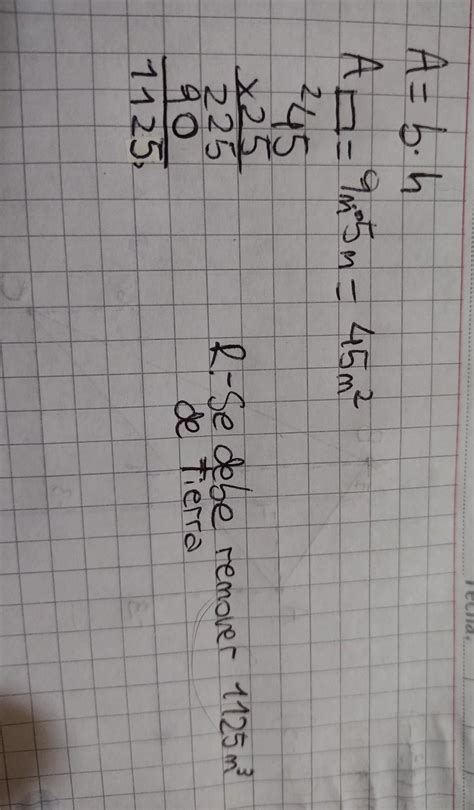 A = b · h
A □ = 9m · 5m = 45m²
²45
x25
225
90
1125,
R.- Se debe remover 1125m³
de tierra
fecha: